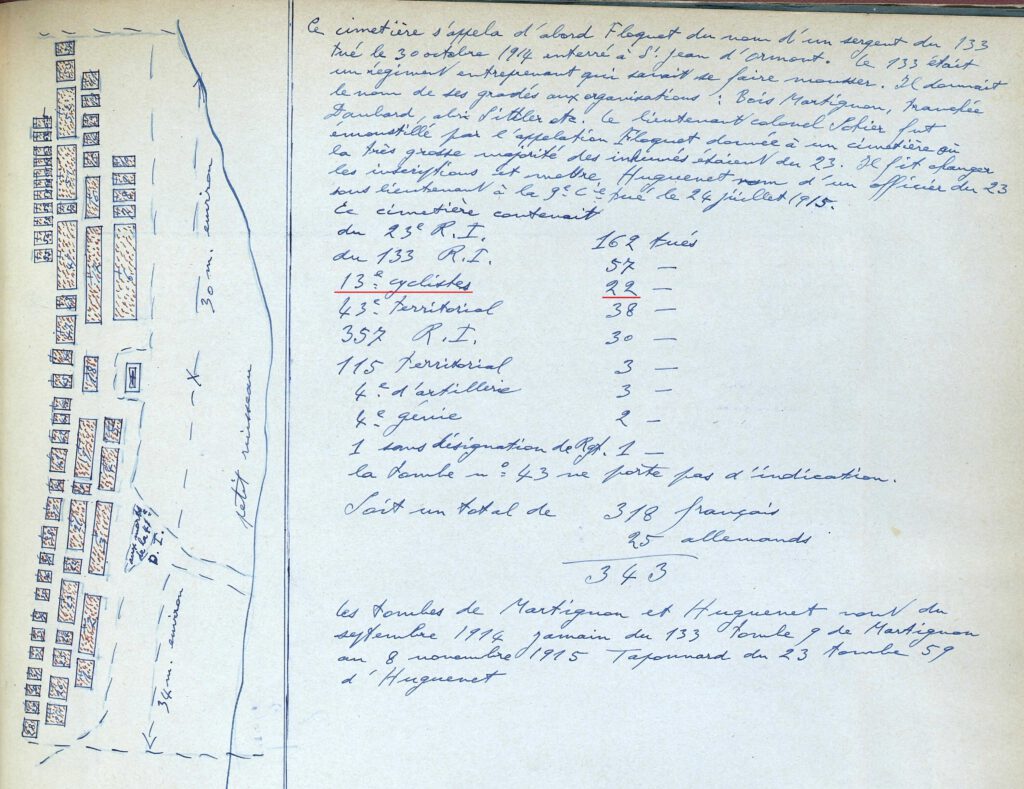 Ce cimetière s'appela d'abord Floquet du nom d'un sergent du 133
tué le 30 octobre 1914 enterré à St Jean d'Ormont. Le 133 était
un régiment entreprenant qui savait se faire mousser. Il donnait
le nom de ses gradés aux organisations : Bois Martignon, tranchée
Daubard, abri Sittler etc. Le lieutenant colonel Sohier fut
émoustillé par l'appelation Floquet donnée à un cimetière où
la très grosse majorité des inhumés étaient du 23. Il fit changer
les inscriptions et mettre Huguenet nom d'un officier du 23
sous lieutenant à la 9e Cie tué le 24 juillet 1915.
Ce cimetière contenait
du 23e R.I. 162 tués
du 133 R.I. 57 —
13e cyclistes 22 —
43e territorial 38 —
357 R.I. 30 —
115 territorial 3 —
4e d'artillerie 3 —
4e génie 2 —
1 sans désignation de Rgt. 1 —
la tombe no 43 ne porte pas d'indication.
Soit un total de 318 français
25 allemands
343
Les tombes de Martignon et Huguenet vont du
septembre 1914 Jamain du 133 tombe 9 de Martignon
au 8 novembre 1915 Taponnard du 23 tombe 59
d'Huguenet
30 m. environ
petit ruisseau
aux morts
de la 41e
D.I.
34 m. environ